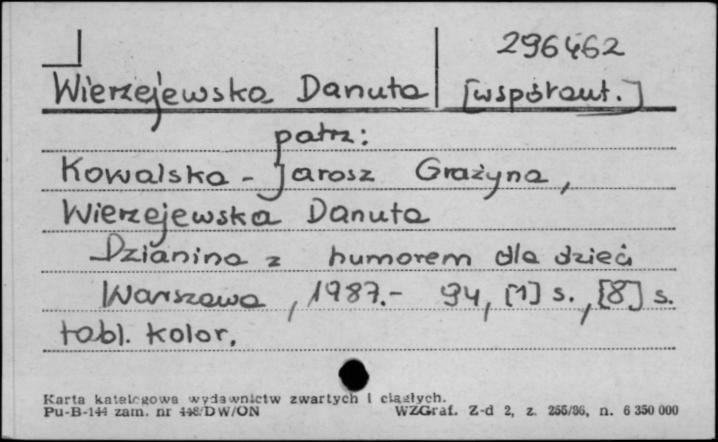 296462
Wierzejewska Danuta [współaut.]
patrz:
Kowalska - Jarosz Grażyna,
Wierzejewska Danuta
Dzianina z humorem dla dzieci
Warszawa, 1987.- 94, [1] s., [8] s.
tabl. kolor.
Karta katalogowa wydawnictw zwartych i ciągłych.
Pu-B-144 zam. nr 448/DW/ON WZGraf. Z-d 2, z. 255/86, n. 6 350 000